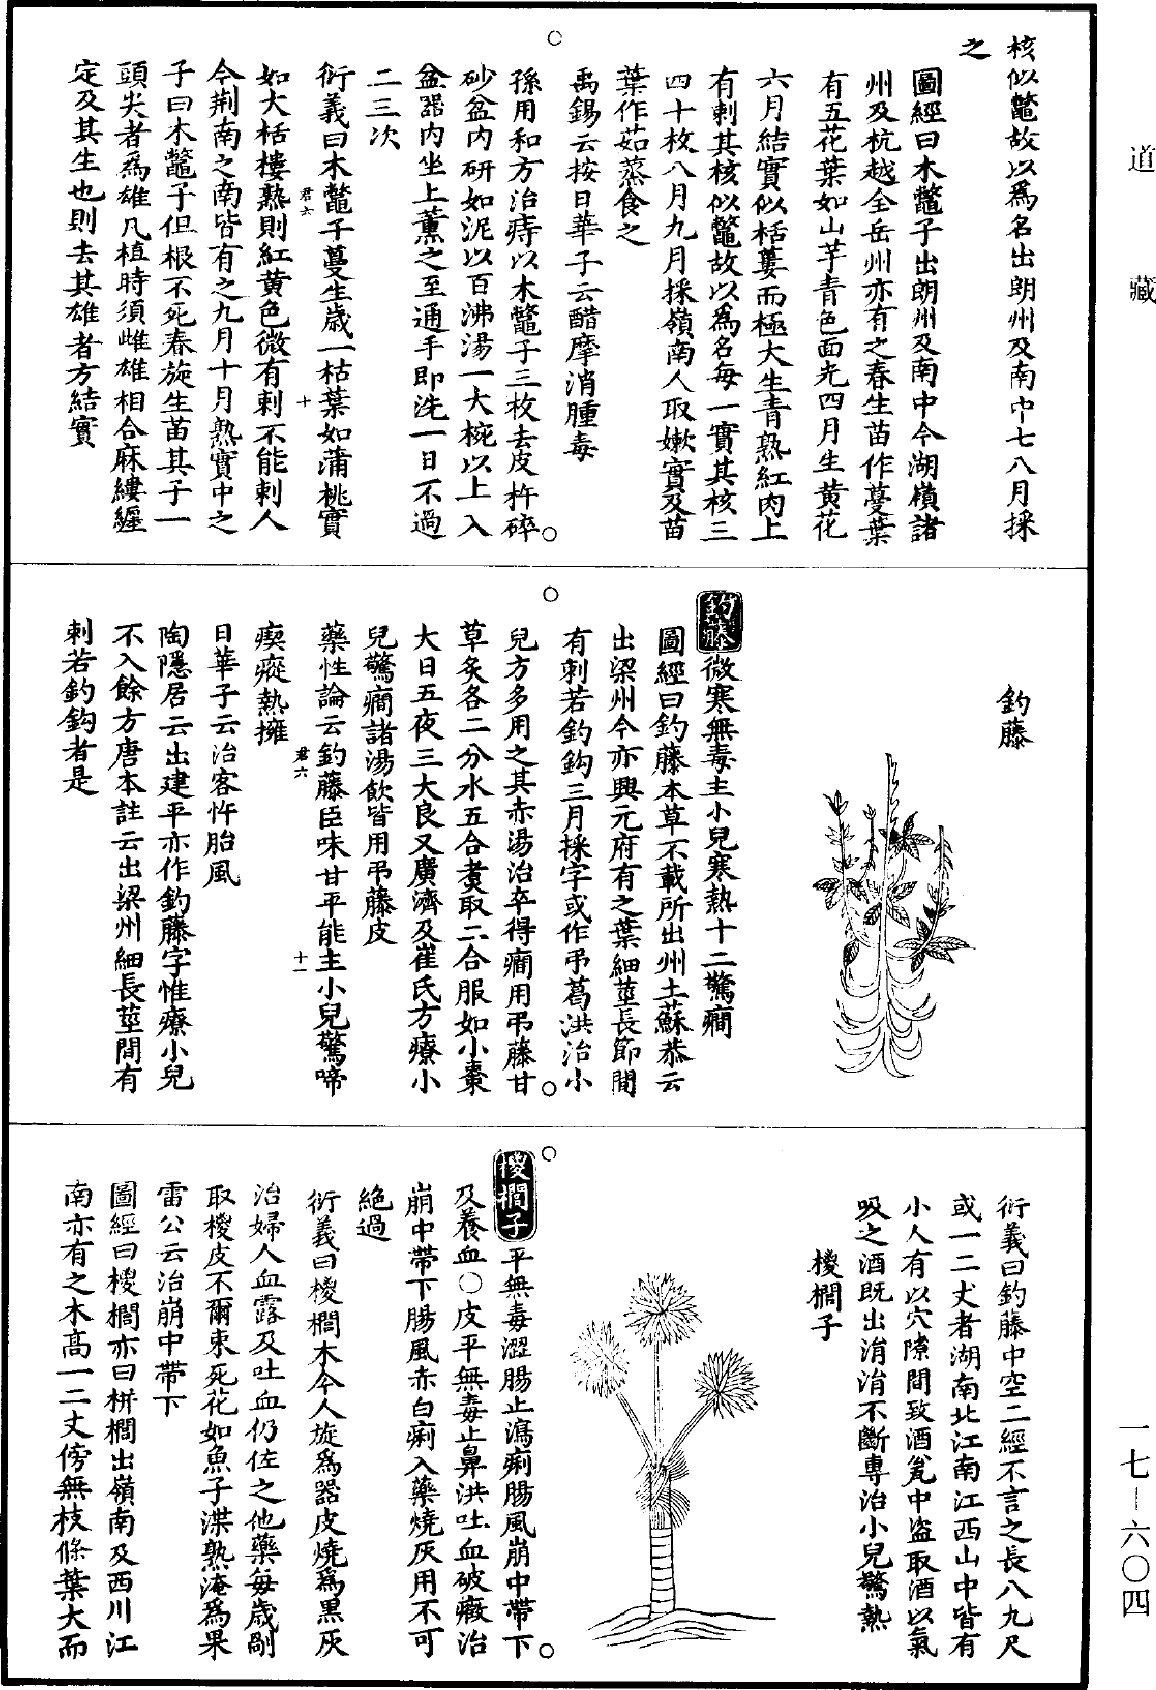 道藏
核似鼈故以爲名出朗州及南中七八月採
之
圖經曰木鼈子出朗州及南中今湖嶺諸
州及杭越全岳州亦有之春生苗作蔓葉
有五花葉如山芋青色面光四月生黃花
六月結實似栝蔞而極大生青熟紅肉上
有刺其核似鼈故以爲名每一實其核三
四十枚八月九月採嶺南人取嫰實及苗
葉作茹蒸食之
禹錫云按日華子云醋摩消腫毒
孫用和方治痔以木鼈子三枚去皮杵碎
砂盆内研如泥以百沸湯一大椀以上入
盆器内坐上薰之至通手即洗一日不過
二三次
衍義曰木鼈子蔓生歳一枯葉如蒲桃實
如大栝樓熟則紅黃色微有刺不能刺人
今荆南之南皆有之九月十月熟實中之
子曰木鼈子但根不死春旋生苗其子一
頭尖者爲雄凡植時須雌雄相合麻縷纏
定及其生也則去其雄者方結實
君六
十
釣藤
釣藤微寒無毒主小兒寒熱十二驚癎
圖經曰釣藤本草不載所出州土蘇恭云
出梁州今亦興元府有之葉細莖長節間
有刺若釣鈎三月採字或作弔葛洪治小
兒方多用之其赤湯治卒得癎用弔藤甘
草炙各二分水五合煑取二合服如小棗
大日五夜三大良又廣濟及崔氏方療小
兒驚癎諸湯飲皆用弔藤皮
藥性論云釣藤臣味甘平能主小兒驚啼
瘈瘲熱擁
日華子云治客忤胎風
陶隱居云出建平亦作釣藤字惟療小兒
不入餘方唐本註云出梁州細長莖間有
刺若釣鈎者是
君六
十一
衍義曰釣藤中空二經不言之長八九尺
或一二丈者湖南北江南江西山中皆有
小人有以穴隙間致酒瓮中盜取酒以氣
吸之酒既出涓涓不斷專治小兒驚熱
椶櫚子
椶櫚子平無毒澀腸止瀉痢腸風崩中帶下
及養血○皮平無毒止鼻洪吐血破癥治
崩中帶下腸風赤白痢入藥燒灰用不可
絶過
衍義曰椶櫚木今人旋爲器皮燒爲黑灰
治婦人血露及吐血仍佐之他藥每歳剮
取椶皮不爾束死花如魚子渫熟淹爲果
雷公云治崩中帶下
圖經曰椶櫚亦曰栟櫚出嶺南及西川江
南亦有之木高一二丈傍無枝條葉大而
一七-六〇四